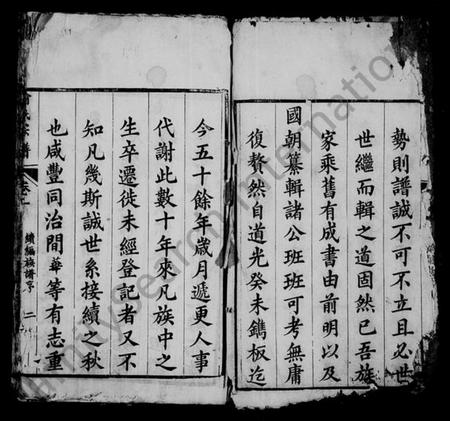 勢則譜誠不可不立且必世
世繼而輯之道固然已吾族
家乘舊有成書由前明以及
國朝纂輯諸公班班可考無庸
復贅然自道光癸未鐫板迄
今五十餘年歲月遞更人事
代謝此數十年來凡族中之
生卒遷徙未經登記者又不
知凡幾斯誠世系接續之秋
也咸豐同治間華等有志重
氏宗譜 卷 續編族譜序 二